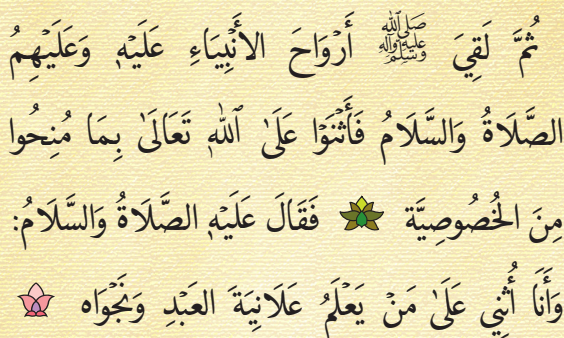 ثُمَّ لَقِيَ ﷺ أَرْوَاحَ الأَنْبِيَاءِ عَلَيْهِ وَعَلَيْهِمُ
الصَّلَاةُ وَالسَّلَامُ فَأَثْنَوْا عَلَىٰ ٱللهِ تَعَالَىٰ بِمَا مُنِحُوا
مِنَ الْخُصُوصِيَّة فَقَالَ عَلَيْهِ الصَّلَاةُ وَالسَّلَامُ:
وَأَنَا أُثْنِي عَلَىٰ مَنْ يَعْلَمُ عَلَانِيَةَ العَبْدِ وَنَجْوَاه